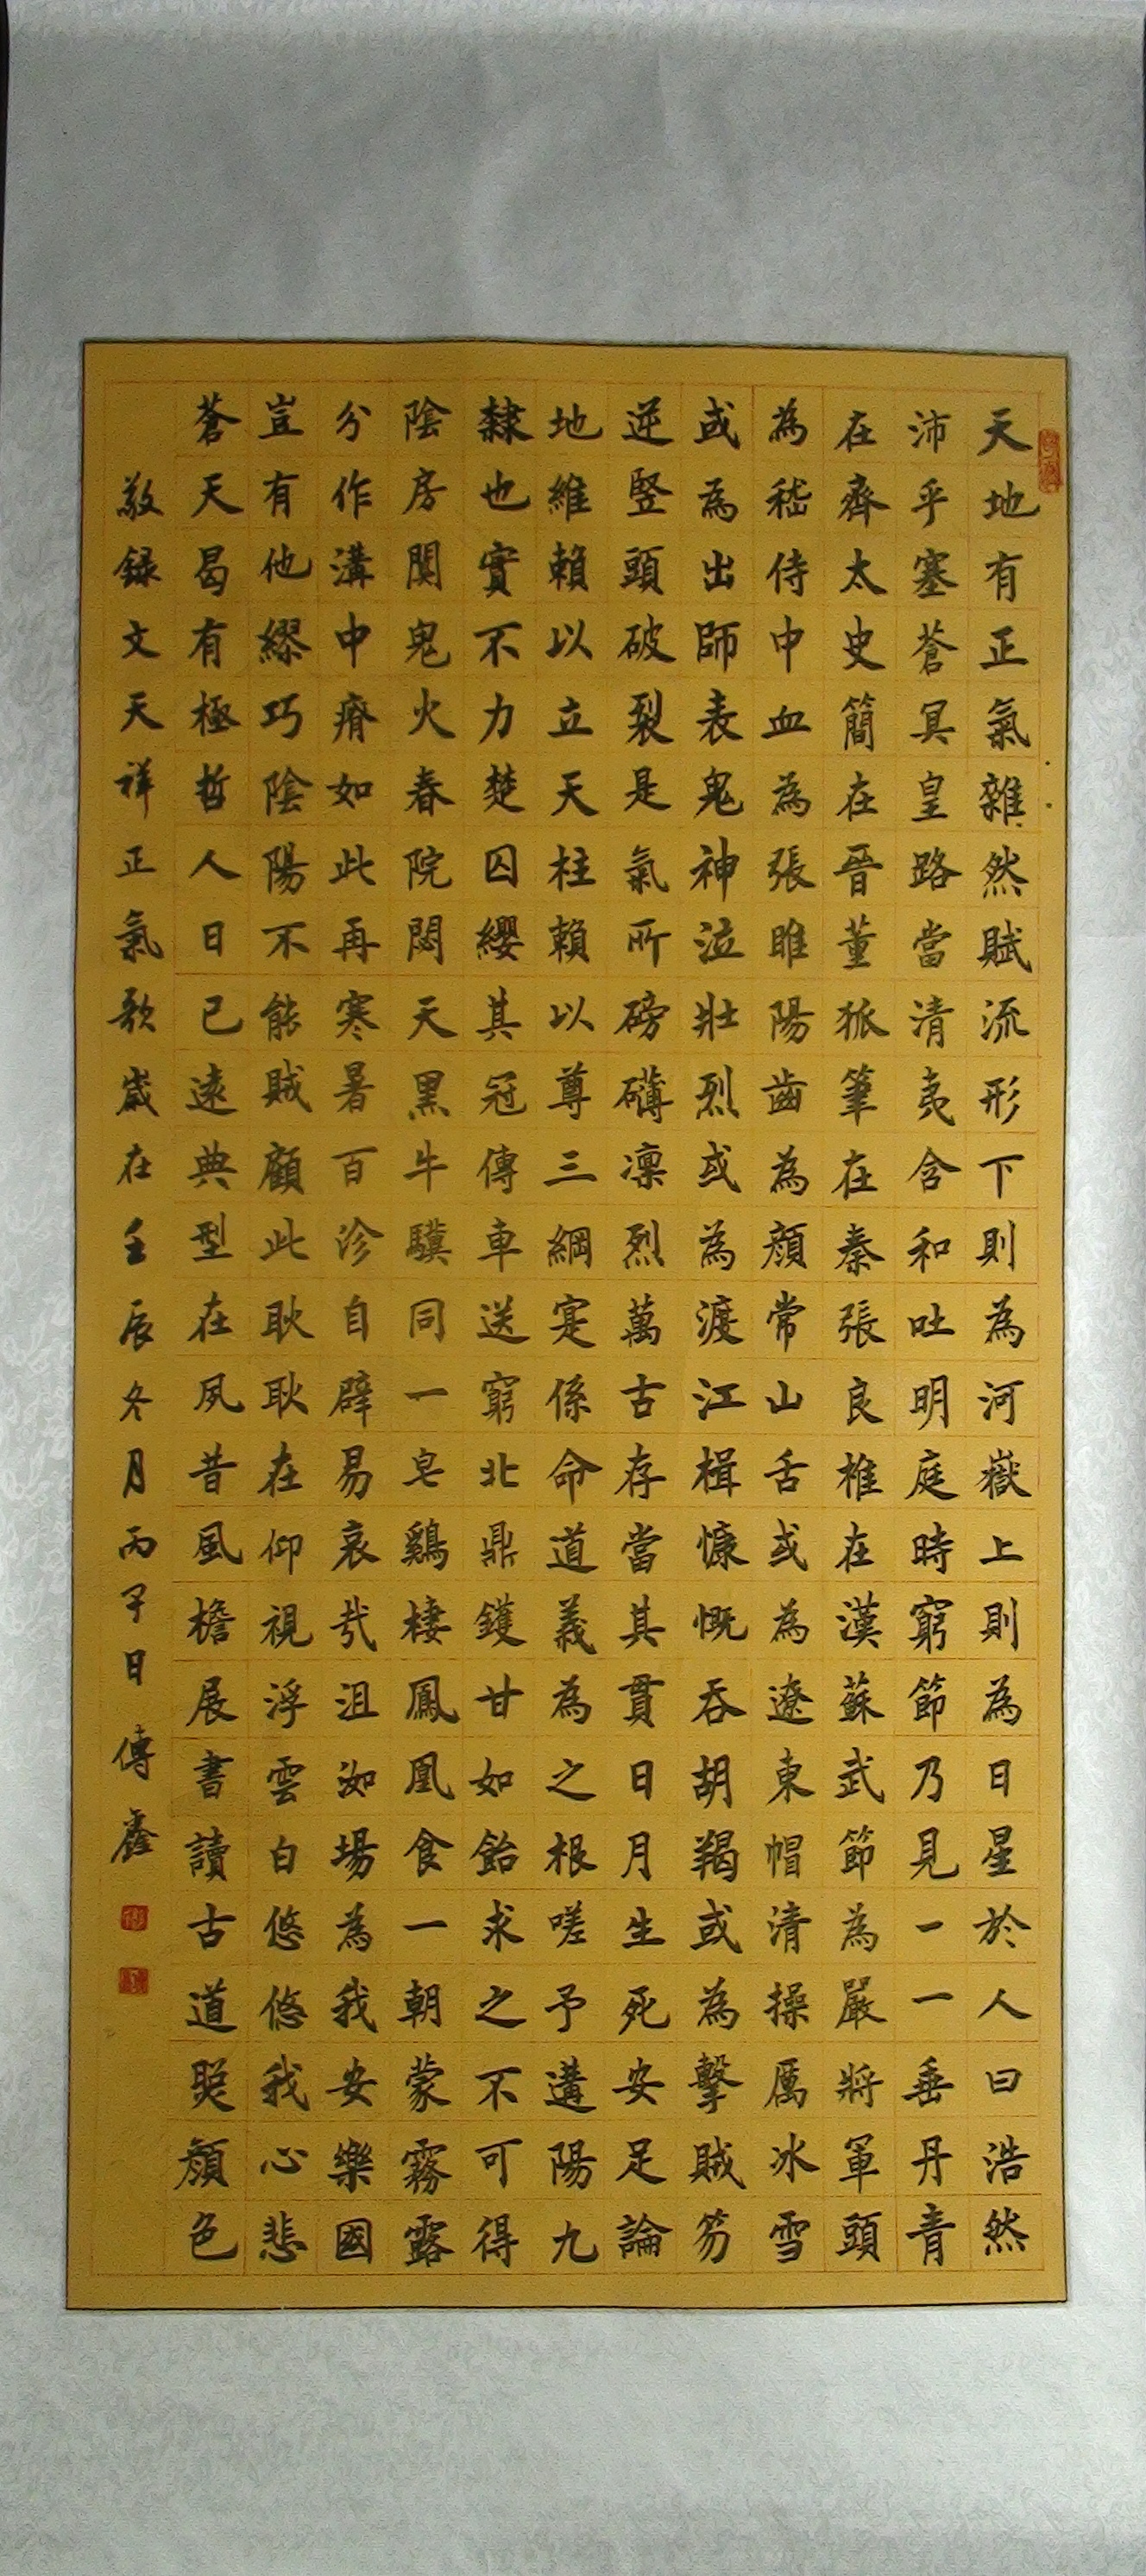 天地有正氣雜然賦流形下則為河嶽上則為日星於人曰浩然
沛乎塞蒼冥皇路當清夷含和吐明庭時窮節乃見一一垂丹青
在齊太史簡在晉董狐筆在秦張良椎在漢蘇武節為嚴將軍頭
為嵇侍中血為張睢陽齒為顏常山舌或為遼東帽清操厲冰雪
或為出師表鬼神泣壯烈或為渡江楫慷慨吞胡羯或為擊賊笏
逆豎頭破裂是氣所磅礴凜烈萬古存當其貫日月生死安足論
地維賴以立天柱賴以尊三綱寔係命道義為之根嗟予遘陽九
隸也實不力楚囚纓其冠傳車送窮北鼎鑊甘如飴求之不可得
陰房闃鬼火春院閟天黑牛驥同一皂鷄棲鳳凰食一朝蒙霧露
分作溝中瘠如此再寒暑百沴自辟易哀哉沮洳場為我安樂國
豈有他繆巧陰陽不能賊顧此耿耿在仰視浮雲白悠悠我心悲
蒼天曷有極哲人日已遠典型在夙昔風檐展書讀古道照顏色
敬録文天祥正氣歌歲在壬辰冬月丙子日 傅鑫